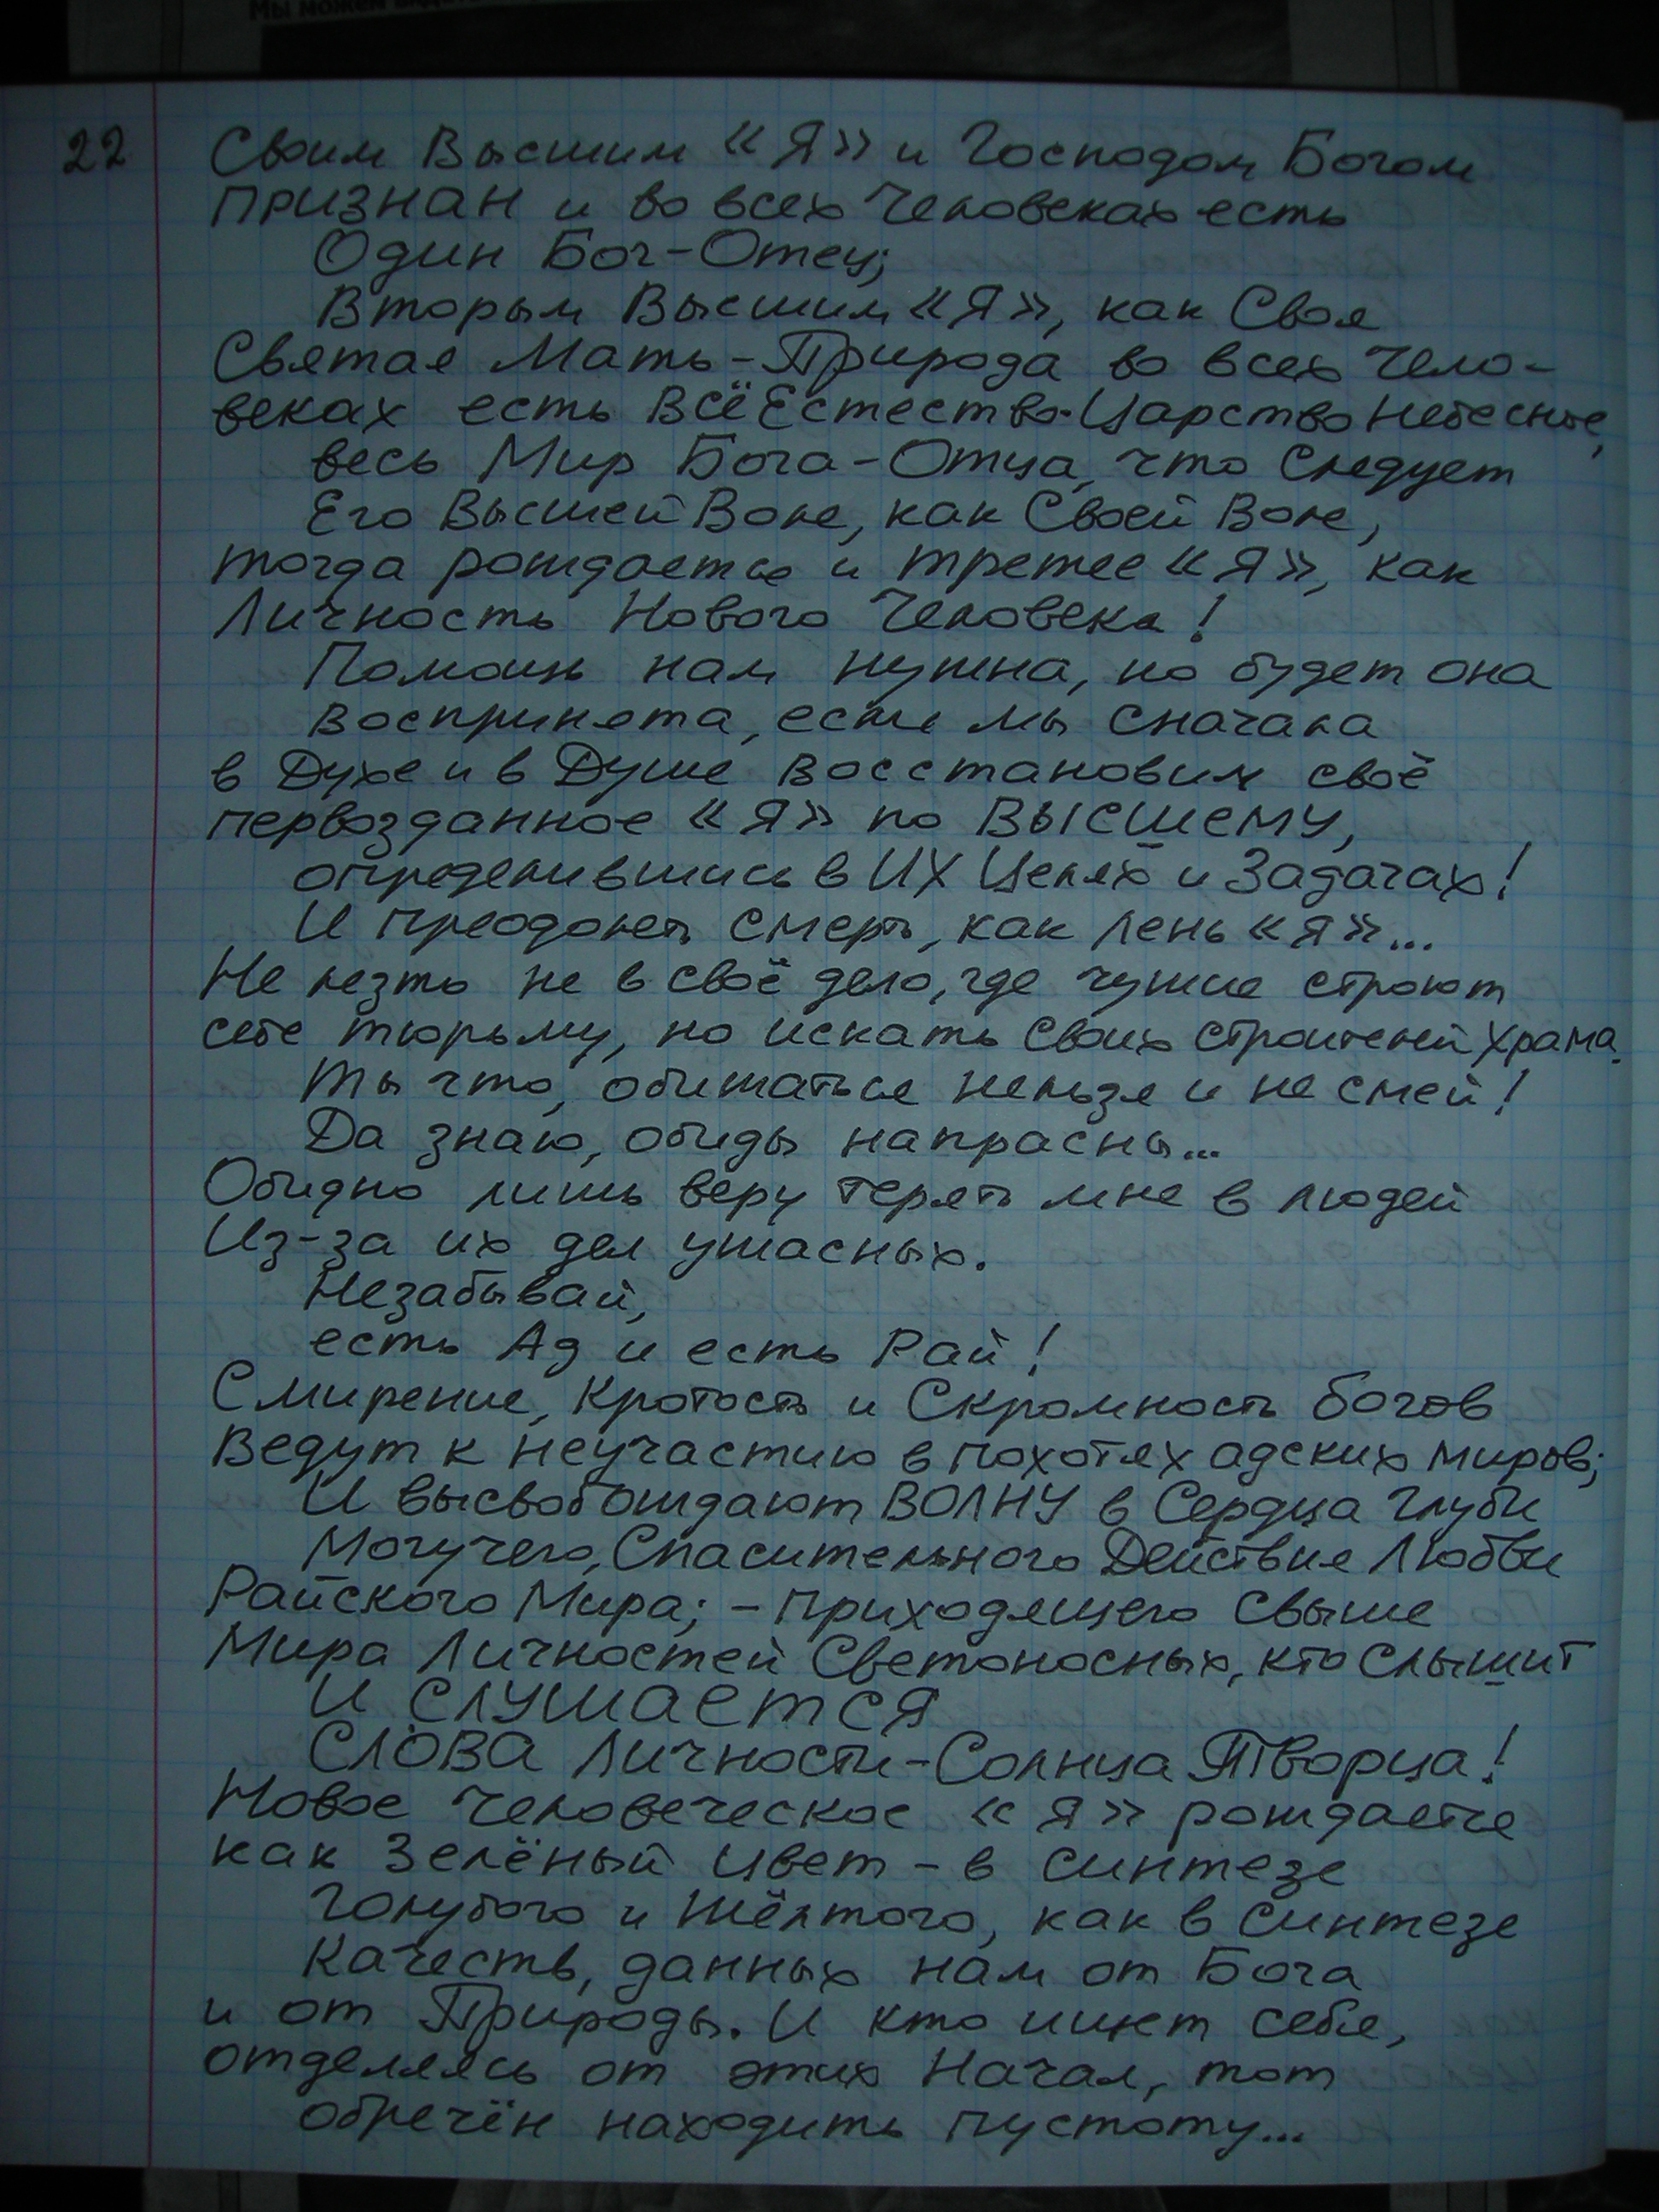 Мы можем
22
Своим Высшим «Я» и Господом Богом
ПРИЗНАН и во всех Человеках есть
Один Бог-Отец;
Вторым Высшим «Я», как Своя
Святая Мать-Природа во всех Чело-
веках есть ВСЁ Естество-Царство Небесное,
весь Мир Бога-Отца, что следует
Его Высшей Воле, как Своей Воле,
тогда рождается и третее «Я», как
Личность Нового Человека!
Помощь нам нужна, но будет она
воспринята, если мы сначала
в Духе и в Душе восстановим своё
первозданное «Я» по ВЫСШЕМУ,
определившись в ИХ Целях и Задачах!
И преодолеть смерть, как лень «Я»...
Не лезть не в своё дело, где чужие строют
себе тюрьму, но искать своих строителей храма.
Ты что, обижаться нельзя и не смей!
Да знаю, обиды напрасны...
Обидно лишь веру терять мне в людей
Из-за их дел ужасных.
Незабывай,
есть Ад и есть Рай!
Смирение, Кротость и Скромность богов
Ведут к неучастию в похотях адских миров;
И высвобождают ВОЛНУ в Сердца глуби
Могучего, Спасительного Действия Любви
Райского Мира; - приходящего свыше
Мира Личностей Светоносных, кто слышит
И СЛУШАЕТСЯ
СЛОВА Личности-Солнца Творца!
Новое Человеческое «Я» рождается
как Зелёный цвет - в синтезе
Голубого и Жёлтого, как в синтезе
Качеств, данных нам от Бога
и от Природы. И кто ищет себя,
отделяясь от этих Начал, тот
обречён находить пустоту...